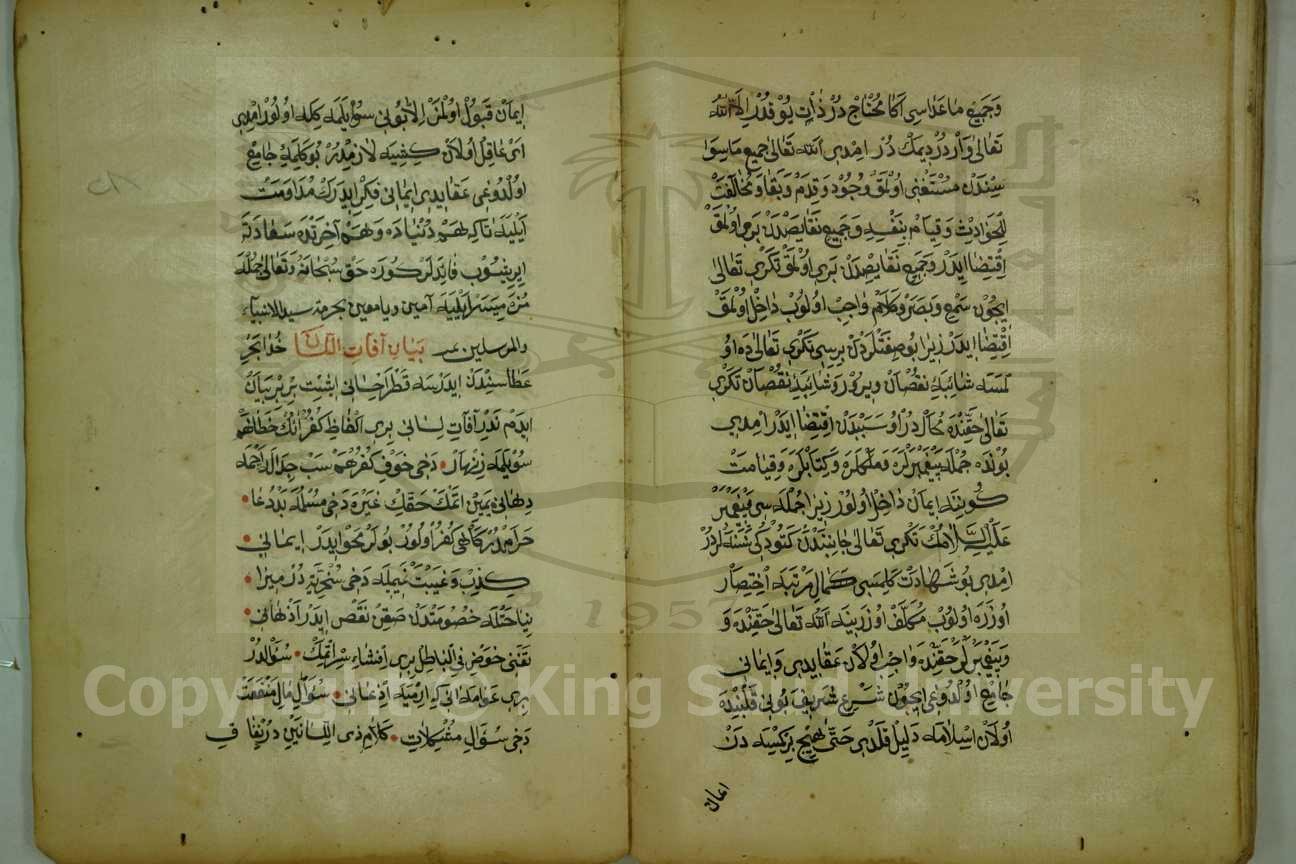 وَجَمِيعِ مَاعَدَاسِى اَكَا مُحْتَاجْ دُرْ ذَاتِ يُوقْدُرْ اِلَّا اللّٰه
تَعَالٰى وَارْدُرْ دِيمَكْ دُرْ اِمْدِى اَللّٰه تَعَالٰى جَمِيعِ مَاسِوَا
سِنْدَنْ مُسْتَغْنِى اُولْمَقْ وُجُودْ وَقِدَمْ وَبَقَا وَمُخَالَفَتْ
لِلْحَوَادِثْ وَقِيَامْ بِنَفْسِهِ وَجَمِيعِ نَقَايِصْدَنْ بَرِى اُولْمَقْ
اِقْتِضَا اِيدَرْ وَجَمِيعِ نَقَايِصْدَنْ بَرِى اُولْمَقْ تَكْرِى تَعَالٰى
اِيچُونْ سَمْعِ وَبَصَرْ وَكَلَامْ وَاجِبْ اُولُوبْ دَاخِلْ اُولْمَقْ
اِقْتِضَا اِيدَرْ زِيرَا بُوصِفَتْلَرْدَنْ بِرِيسِى تَكْرِى تَعَالٰى دَهْ اُو
لْمَسَهْ شَائِبَهِٔ نُقْصَانْ وِيرُورْ وَشَائِبَهِٔ نُقْصَانْ تَكْرِى
تَعَالٰى حَقِّنْدَهْ مُحَالْ دُرْ اُوسَبَبْدَنْ اِقْتِضَا اِيدَرْ اِمْدِى
بُونْدَهْ جُمْلَهْ پَيْغَمْبَرْلَرَهْ وَمَلَكْلَرَهْ وَكِتَابْلَرَهْ وَقِيَامَتْ
كُونِينَهْ اِيمَانْ دَاخِلْ اُولُورْ زِيرَا جُمْلَهْ سِى پَيْغَمْبَرْ
عَلَيْهِ السَّلَامُكْ تَكْرِى تَعَالٰى جَانِبِنْدَنْ كَتُورْدُكِى نَسْنَهْ لَرْدُرْ
اِمْدِى بُوشَهَادَتْ كَلِمَسِى كَمَالِ مَرْتَبَهْ اِخْتِصَارْ
اُوزَرَهْ اُولُوبْ مُكَلَّفْ اُوزَرِينَهْ اَللّٰه تَعَالٰى حَقِّنْدَهْ وَ
وَپَيْغَمْبَرْلَرْ حَقِّنْدَهْ وَاجِبْ اُولَانْ عَقَايِدِى وَاِيمَانِى
جَامِعْ اُولْدُوغِى اِيچُونْ شَرْعِ شَرِيفْ بُونِى قَلْبِنْدَهْ
اُولَانْ اِسْلَامَهْ دَلِيلْ قِلْدِى حَتّٰى هِيچْ بِرْكِمْسَهْ دَنْ
ايمان
اِيمَانْ قَبُولْ اُولْمَزْ اِلَّا بُونِى سُوْيِلَمَهْ كِلَهْ اُولُورْ اِمْدِى
اَىْ عَاقِلْ اُولَانْ كِشِيَهْ لَازِمْدُرْ بُوكَلِمَهْ جَامِعْ
اُولْدُوغِى عَقَايِدِى اِيمَانِى فِكْرْ اِيدَرَكْ مُدَاوَمَتْ
اَيْلِيَهْ تَاكِهْ هَمْ دُنْيَادَهْ وَهَمْ آخِرَتْدَهْ سَعَادَتَهْ
اِيرِيشُوبْ فَائِدَلَرْ كُورَهْ حَقْ سُبْحَانَهُ وَتَعَالٰى جُمْلَهْ
مُزَهْ مُيَسَّرْ اَيْلِيَهْ آمين ويامعين بحرمة سيد الانبياء
والمرسلين بَيَانِ آفَاتِ اللِّسَانْ خُدَا بَحْرِ
عَطَاسِنْدَنْ اِيدَرْسَهْ قَطْرَه اِحْسَانِى اِشِتْ بِرْ بِرْ بَيَانْ
اِيدَمْ نَدُرْ آفَاتِ لِسَانِى بِرِى اَلْفَاظِ كُفْرْ اَنُكْ خَطَاهَمْ
سُوْيَلَمَهْ زِنْهَارْ • دَخِى خَوْفِ كُفُرْ هَمْ سَبْ جِدَالْ
يَمِينْ اِتْمَكْ حَقِّكْ غَيْرِهْ دَخِى مُسْلِمَهْ بَدْدُعَا •
حَرَامْدُرْ كَاهِى كُفُرْ اُولُورْ بُولَرْ مَحْو اِيدَرْ اِيمَانِى •
كِذِبْ وَغِيبَتْ نَمِيمَهْ دَخِى سُخْرِيَهْ دُرْ مِيرَا •
نِيَاحَتْلَهْ خُصُومَتْدَنْ صَقِنْ نَقْصْ اِيدَرْ اَذْهَانِى •
تَغَنِّى خَوْضِ فِى الْبَاطِلْ بِرِى اِفْشَاءِ سِرْ اِتْمَكْ • سُؤَالْدُرْ
بِرِى عَوَامَهْ اَنِى كِهْ اِرْمِيَهْ اِذْعَانِى • سُؤَالِ مَالْ مَنْفَعَتْ
دَخِى سُؤَالِ مُشْكِلَاتْ • كَلَامِ ذِى اللِّسَانَيْنِ دُرْ نِفَاقِ
Copyright © King Saud University
1957